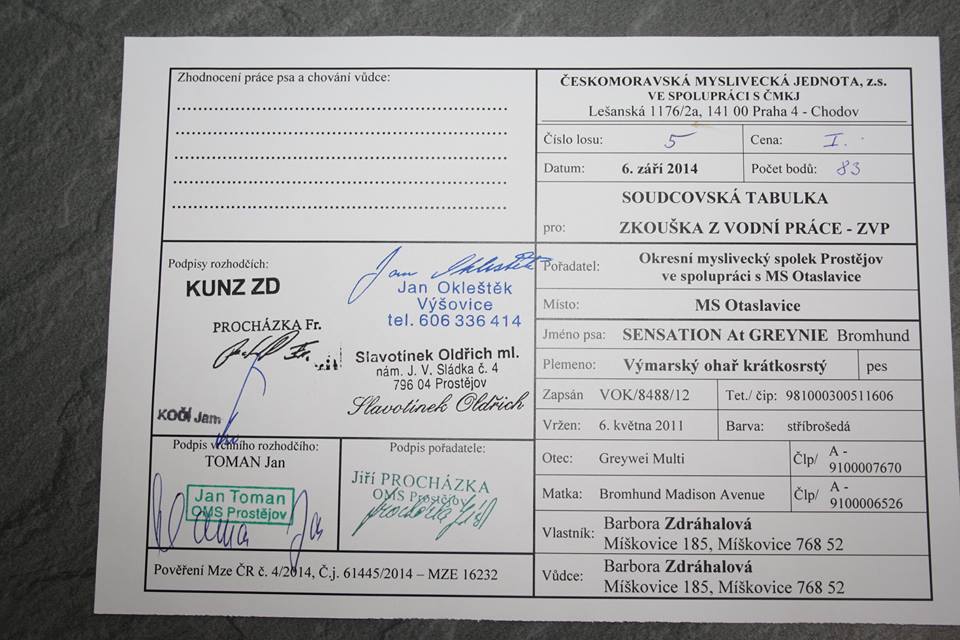 Zhodnocení práce psa a chování vůdce:
Podpisy rozhodčích:
KUNZ ZD
Jan Okleštěk
Jan Okleštěk
Výšovice
tel. 606 336 414
PROCHÁZKA Fr.
Slavotínek Oldřich ml.
nám. J. V. Sládka č. 4
796 04 Prostějov
Slavotínek Oldřich
KOČÍ Jam
Podpis vrchního rozhodčího:
TOMAN Jan
Jan Toman
OMS Prostějov
Toman Jan
Podpis pořadatele:
Jiří PROCHÁZKA
OMS Prostějov
Procházka Jiří
Pověření Mze ČR č. 4/2014, Č.j. 61445/2014 – MZE 16232
ČESKOMORAVSKÁ MYSLIVECKÁ JEDNOTA, z.s.
VE SPOLUPRÁCI S ČMKJ
Lešanská 1176/2a, 141 00 Praha 4 - Chodov
Číslo losu: 5 Cena: I.
Datum: 6. září 2014 Počet bodů: 83
SOUDCOVSKÁ TABULKA
pro: ZKOUŠKA Z VODNÍ PRÁCE - ZVP
Pořadatel: Okresní myslivecký spolek Prostějov
ve spolupráci s MS Otaslavice
Místo: MS Otaslavice
Jméno psa: SENSATION At GREYNIE Bromhund
Plemeno: Výmarský ohař krátkosrstý pes
Zapsán VOK/8488/12 Tet./ čip: 981000300511606
Vržen: 6. května 2011 Barva: stříbrošedá
Otec: Greywei Multi Člp/ A -
9100007670
Matka: Bromhund Madison Avenue Člp/ A -
9100006526
Vlastník: Barbora Zdráhalová
Míškovice 185, Míškovice 768 52
Vůdce: Barbora Zdráhalová
Míškovice 185, Míškovice 768 52